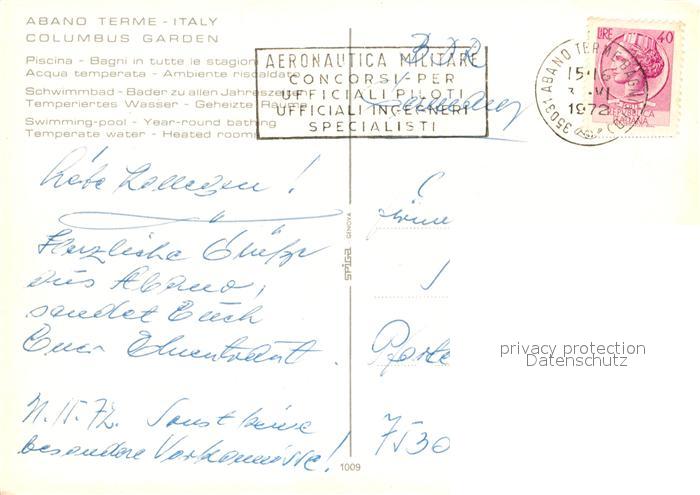 ABANO TERME - ITALY
COLUMBUS GARDEN
Piscina - Bagni in tutte le stagioni
Acqua temperata - Ambiente riscaldato
Schwimmbad - Bäder zu allen Jahreszeiten
Temperiertes Wasser - Geheizte Räume
Swimming-pool - Year-round bathing
Temperate water - Heated rooms
AERONAUTICA MILITARE
CONCORSI PER
UFFICIALI PILOTI
UFFICIALI INGEGNERI
SPECIALISTI
35031 ABANO TERME BAGNI
15-16
VI
1972
LIRE 40
REPUBBLICA
ITALIANA
Liebe Kollegen!
Herzliche Grüße
aus Abano,
sendet Euch
Euer
72. Sonst keine
besondere Vorkommnisse!
Firma
7530
SPIGA GENOVA
1009
privacy protection
Datenschutz